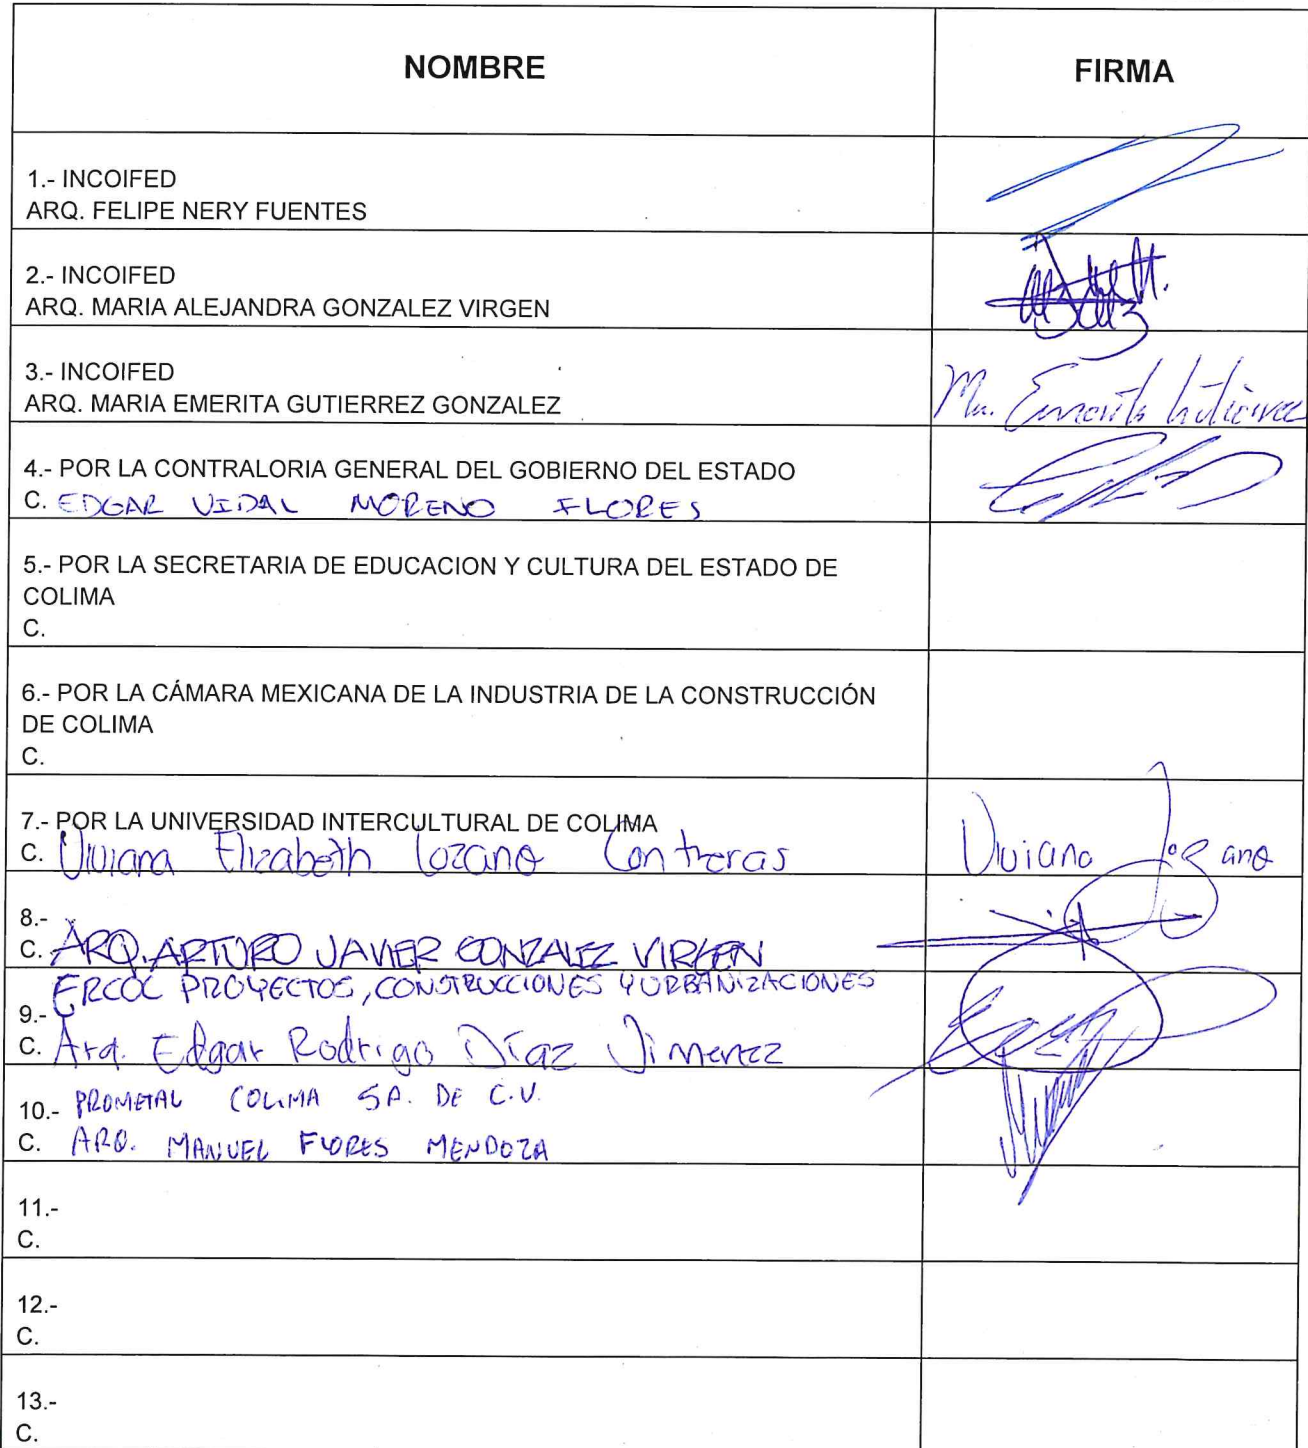 NOMBRE
FIRMA
1.- INCOIFED
ARQ. FELIPE NERY FUENTES
2.- INCOIFED
ARQ. MARIA ALEJANDRA GONZALEZ VIRGEN
3.- INCOIFED
ARQ. MARIA EMERITA GUTIERREZ GONZALEZ
Ma. Emerita Gutierrez
4.- POR LA CONTRALORIA GENERAL DEL GOBIERNO DEL ESTADO
C. EDGAR VIDAL MORENO FLORES
5.- POR LA SECRETARIA DE EDUCACION Y CULTURA DEL ESTADO DE
COLIMA
C.
6.- POR LA CÁMARA MEXICANA DE LA INDUSTRIA DE LA CONSTRUCCIÓN
DE COLIMA
C.
7.- POR LA UNIVERSIDAD INTERCULTURAL DE COLIMA
C. Viviana Elizabeth Lozano Contreras
Viviana Lozano
8.-
C. ARQ. ARTURO JAVIER GONZALEZ VIRGEN
ERCOC PROYECTOS, CONSTRUCCIONES Y URBANIZACIONES
9.-
C. Arq. Edgar Rodrigo Díaz Jimenez
10.- PROMETAL COLIMA SA. DE C.V.
C. ARQ. MANUEL FLORES MENDOZA
11.-
C.
12.-
C.
13.-
C.